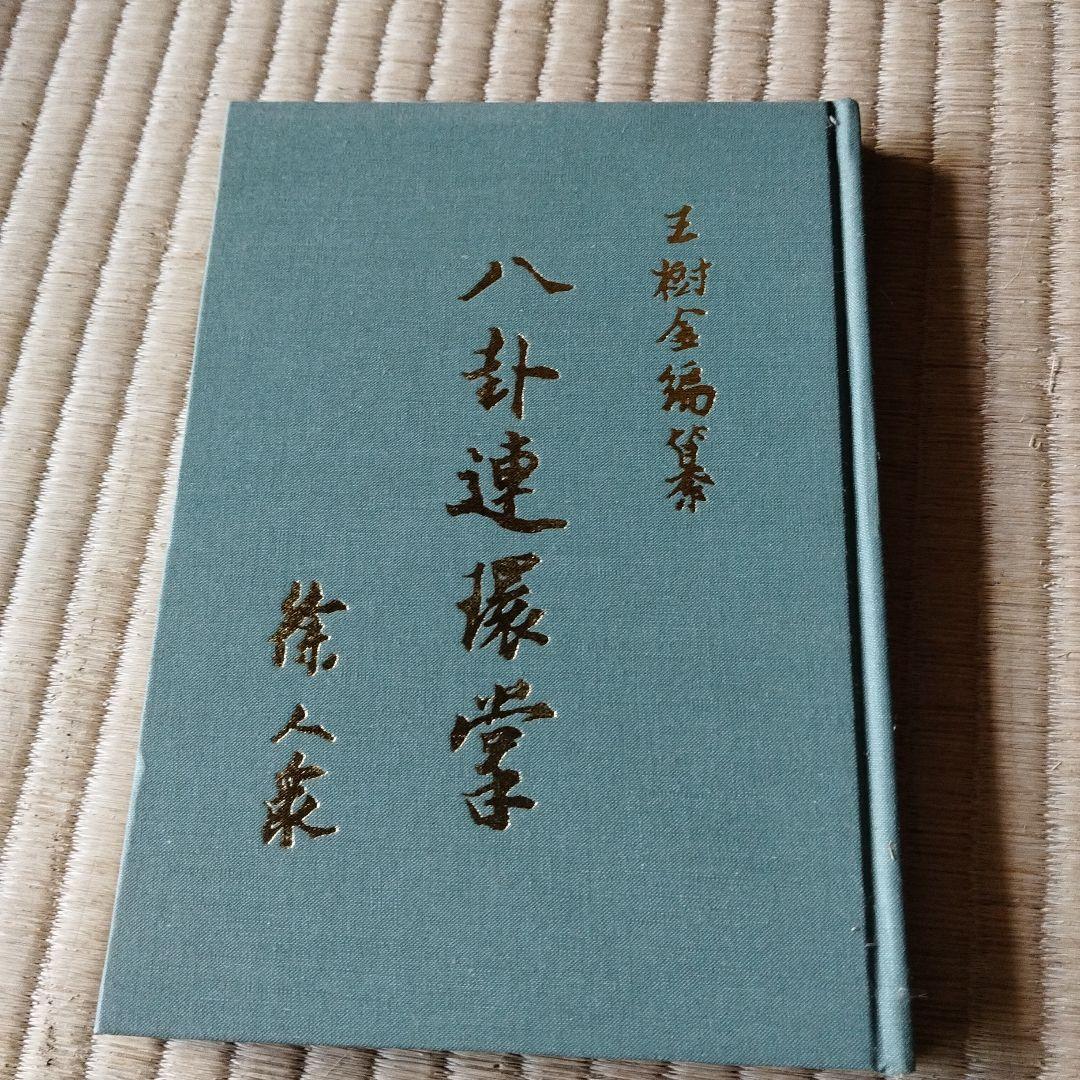 王樹金編纂
八卦連環掌
徐人衆